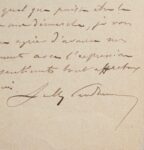 quel que puisse être le
me démarche, je vous
agréer d'avance mes
ments avec l'expression
sentiments tout affectueux
Sully Prudhomme